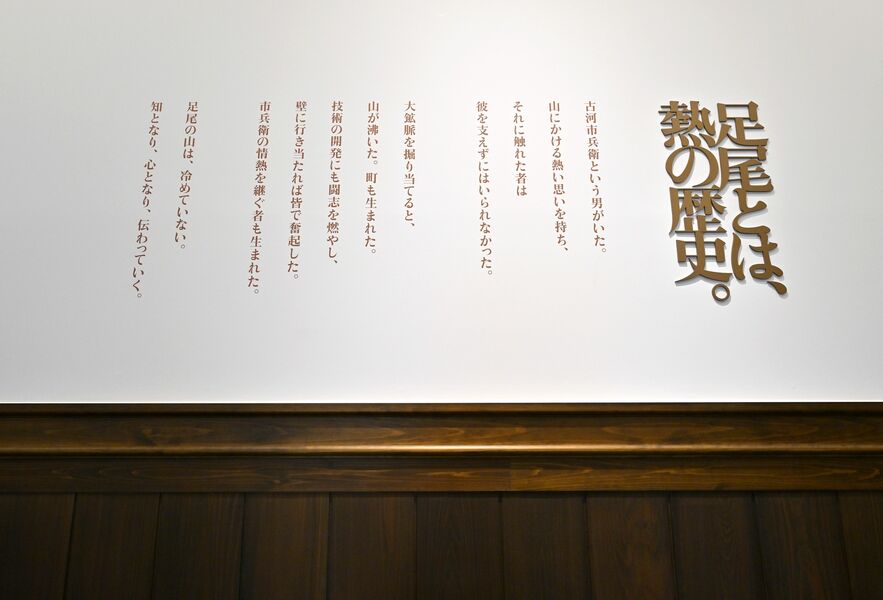 足尾とは、
熱の歴史。
古河市兵衛という男がいた。
山にかける熱い思いを持ち、
それに触れた者は
彼を支えずにはいられなかった。
大鉱脈を掘り当てると、
山が沸いた。町も生まれた。
技術の開発にも闘志を燃やし、
壁に行き当たれば皆で奮起した。
市兵衛の情熱を継ぐ者も生まれた。
足尾の山は、冷めていない。
知となり、心となり、伝わっていく。